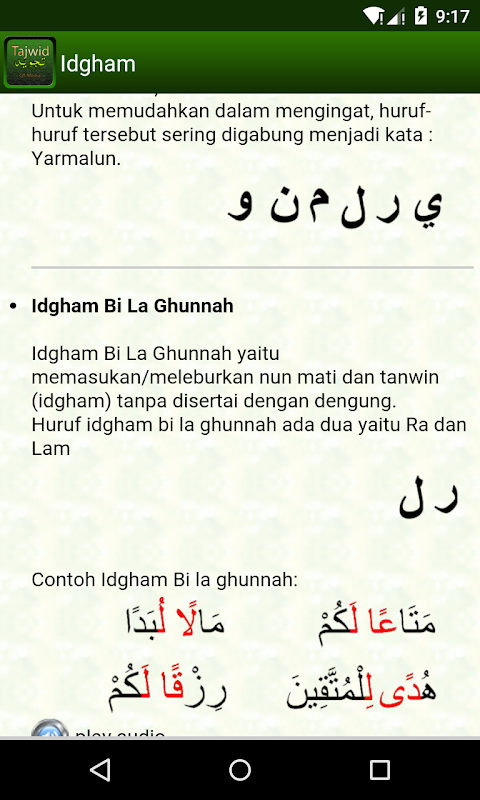 9:17
Tajwid
تجويد
Idgham
Untuk memudahkan dalam mengingat, huruf-
huruf tersebut sering digabung menjadi kata :
Yarmalun.
ي ر ل م ن و
Idgham Bi La Ghunnah
Idgham Bi La Ghunnah yaitu
memasukan/meleburkan nun mati dan tanwin
(idgham) tanpa disertai dengan dengung.
Huruf idgham bi la ghunnah ada dua yaitu Ra dan
Lam
ر ل
Contoh Idgham Bi la ghunnah:
مَتَاعًا لَكُمْ مَالًا لُبَدًا
هُدًى لِلْمُتَّقِينَ رِزْقًا لَكُمْ
play audio